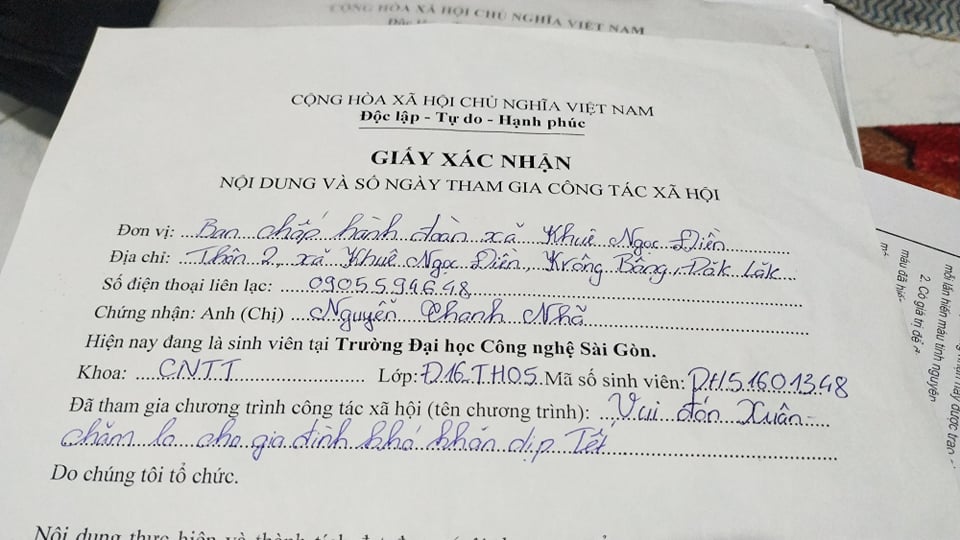 CỘNG HÒA XÃ HỘI CHỦ NGHĨA VIỆT NAM
CỘNG HÒA XÃ HỘI CHỦ NGHĨA VIỆT NAM
Độc lập - Tự do - Hạnh phúc
GIẤY XÁC NHẬN
NỘI DUNG VÀ SỐ NGÀY THAM GIA CÔNG TÁC XÃ HỘI
Đơn vị: Ban chấp hành đoàn xã Khuê Ngọc Điền
Địa chỉ: Thôn 2, xã Khuê Ngọc Điền, Krông Bông, Đăk Lăk
Số điện thoại liên lạc: 0905.594648
Chứng nhận: Anh (Chị) Nguyễn Thanh Nhã
Hiện nay đang là sinh viên tại Trường Đại học Công nghệ Sài Gòn.
Khoa: CNTT Lớp: Đ16_TH05 Mã số sinh viên: DH51601348
Đã tham gia chương trình công tác xã hội (tên chương trình): Vui đón Xuân -
chăm lo cho gia đình khó khăn dịp Tết
Do chúng tôi tổ chức.
Nội dung thực hiện và thành tích
mỗi lần hiến máu tình nguyện
2. Có giá trị để
máu đã hiến